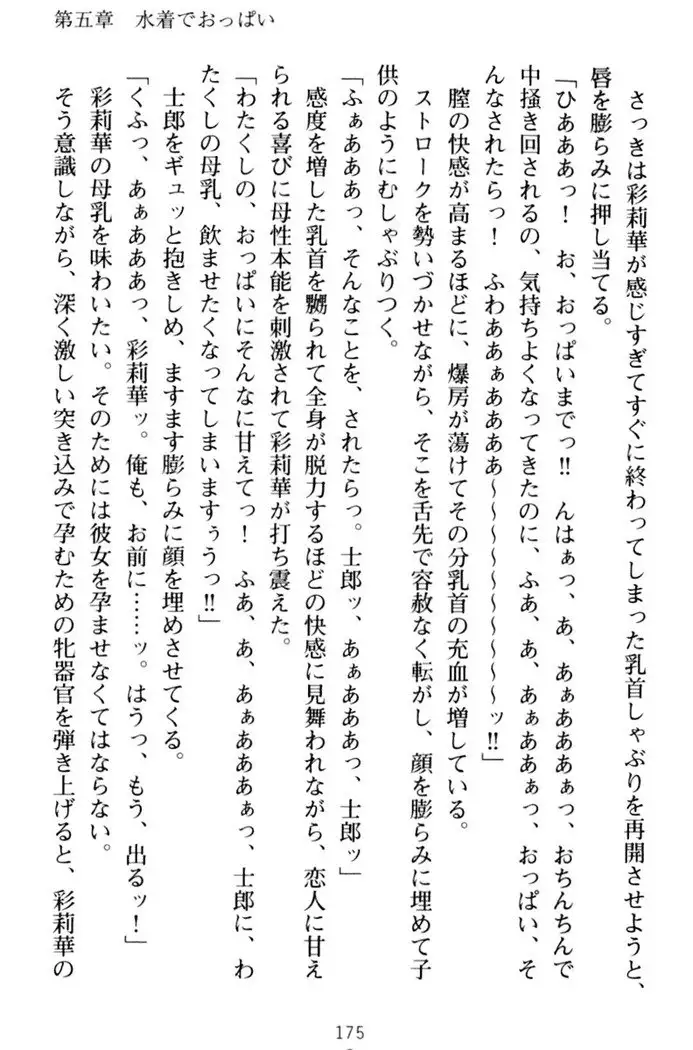 第五章　水着でおっぱい
さっきは彩莉華が感じすぎてすぐに終わってしまった乳首しゃぶりを再開させようと、
唇を膨らみに押し当てる。
「ひあああっ！　お、おっぱいまでっ!!　んはぁっ、あ、あぁあああぁっ、おちんちんで
中掻き回されるの、気持ちよくなってきたのに、ふあ、あ、あぁああぁっ、おっぱい、そ
んなされたらっ！　ふわああぁああああ～～～～～～～～ッ!!」
膣の快感が高まるほどに、爆房が蕩けてその分乳首の充血が増している。
ストロークを勢いづかせながら、そこを舌先で容赦なく転がし、顔を膨らみに埋めて子
供のようにむしゃぶりつく。
「ふぁあああっ、そんなことを、されたらっ。士郎ッ、あぁあああっ、士郎ッ」
感度を増した乳首を嬲られて全身が脱力するほどの快感に見舞われながら、恋人に甘え
られる喜びに母性本能を刺激されて彩莉華が打ち震えた。
「わたくしの、おっぱいにそんなに甘えてっ！　ふあ、あ、あぁあああぁっ、士郎に、わ
たくしの母乳、飲ませたくなってしまいますぅうっ!!」
士郎をギュッと抱きしめ、ますます膨らみに顔を埋めさせてくる。
「くふっ、あぁあああっ、彩莉華ッ。俺も、お前に……ッ。はうっ、もう、出るッ！」
彩莉華の母乳を味わいたい。そのためには彼女を孕ませなくてはならない。
そう意識しながら、深く激しい突き込みで孕むための牝器官を弾き上げると、彩莉華の
175